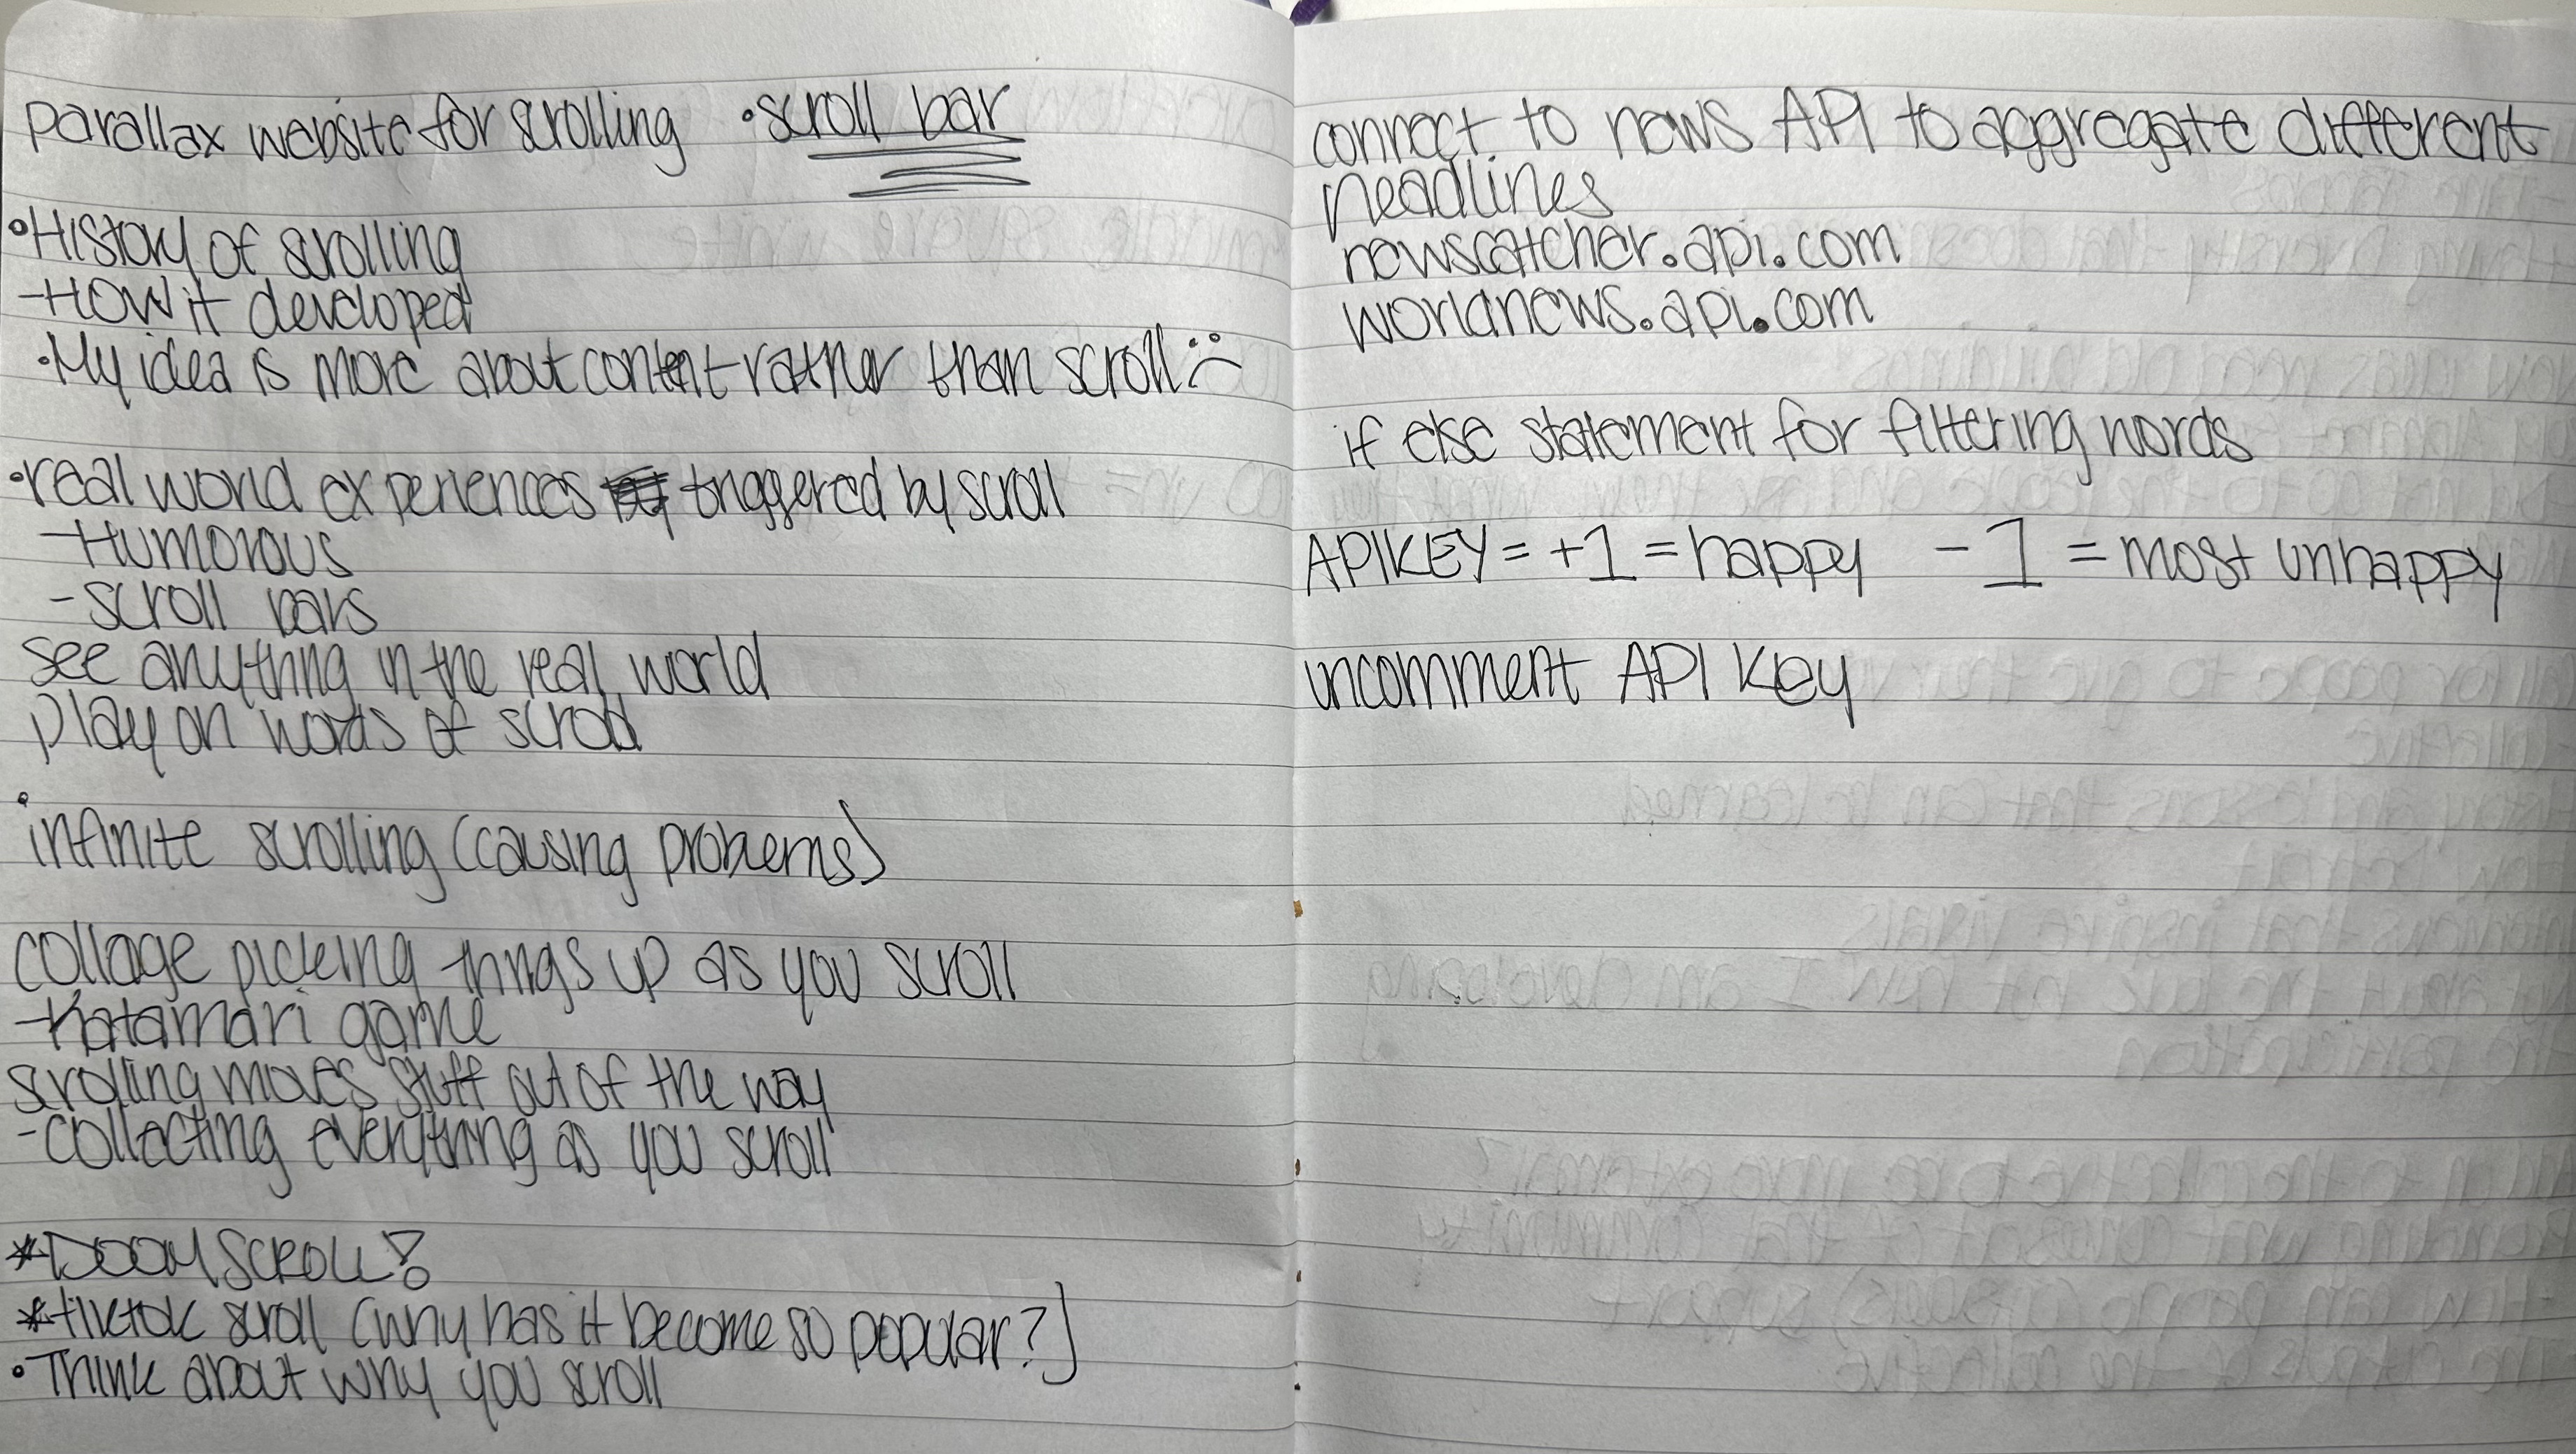 parallax website for scrolling • scroll bar
• History of scrolling
- How it developed
• My idea is more about content rather than scroll :(
• real world experiences triggered by scroll
- Humorous
- scroll bars
see anything in the real world
play on words of scroll
• infinite scrolling (causing problems)
collage picking things up as you scroll
- Katamari game
scrolling moves stuff out of the way
- collecting everything as you scroll
* DOOM SCROLL!
* tiktok scroll (why has it become so popular?)
• Think about why you scroll
connect to news API to aggregate different
headlines
newscatcher.api.com
worldnews.api.com
if else statement for filtering words
APIKEY = +1 = happy -1 = most unhappy
uncomment API Key